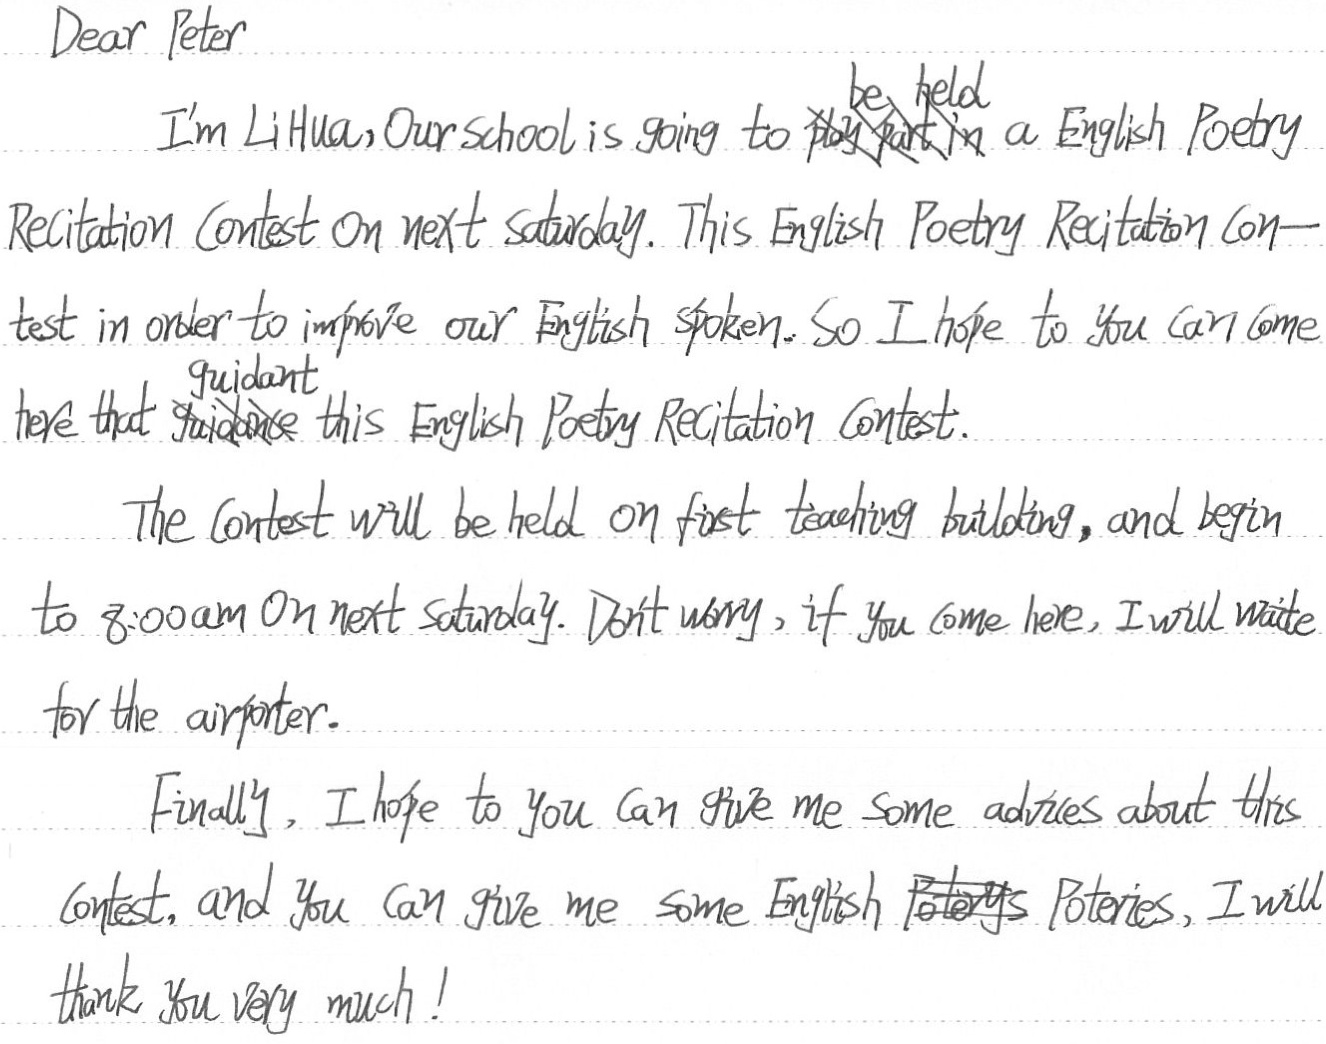 Dear Peter
be held
I'm Li Hua, Our school is going to play part in a English Poetry
Recitation Contest On next saturday. This English Poetry Recitation Con-
test in order to improve our English spoken. So I hope to you can come
guidant
here that guidance this English Poetry Recitation Contest.
The Contest will be held on first teaching building, and begin
to 8:00am On next saturday. Don't worry, if you come here, I will waite
for the airporter.
Finally, I hope to you can give me some advices about this
contest, and you can give me some English Poterys Poteries, I will
thank you very much!